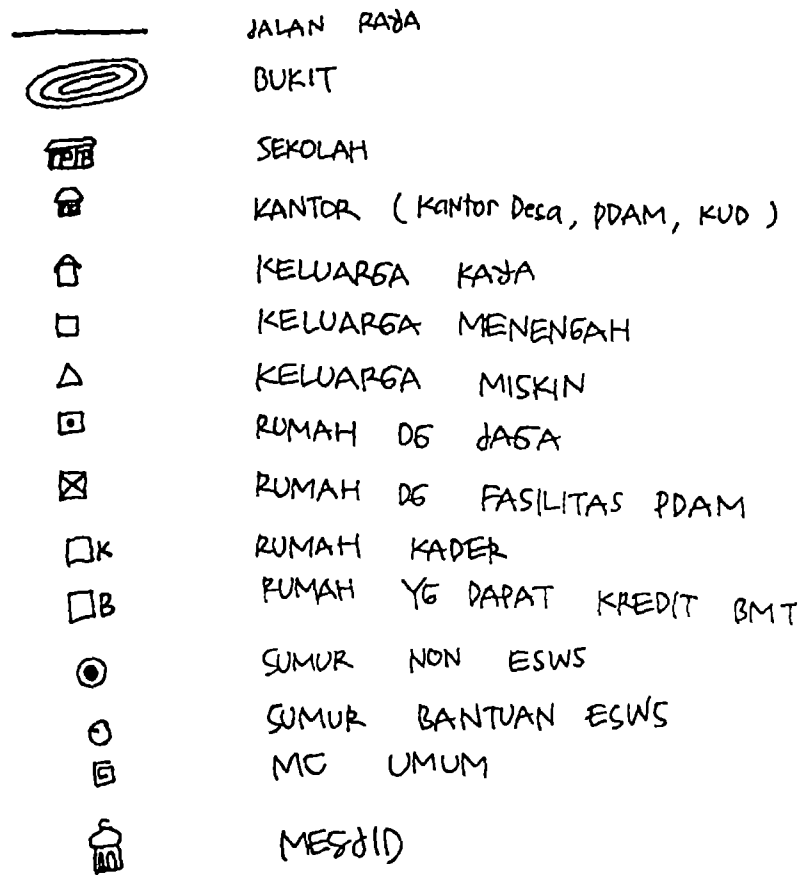 JALAN RAYA
BUKIT
SEKOLAH
KANTOR (Kantor Desa, PDAM, KUD)
KELUARGA KAYA
KELUARGA MENENGAH
KELUARGA MISKIN
RUMAH DG JAGA
RUMAH DG FASILITAS PDAM
K RUMAH KADER
B RUMAH YG DAPAT KREDIT BMT
SUMUR NON ESWS
SUMUR BANTUAN ESWS
MC UMUM
MESJID